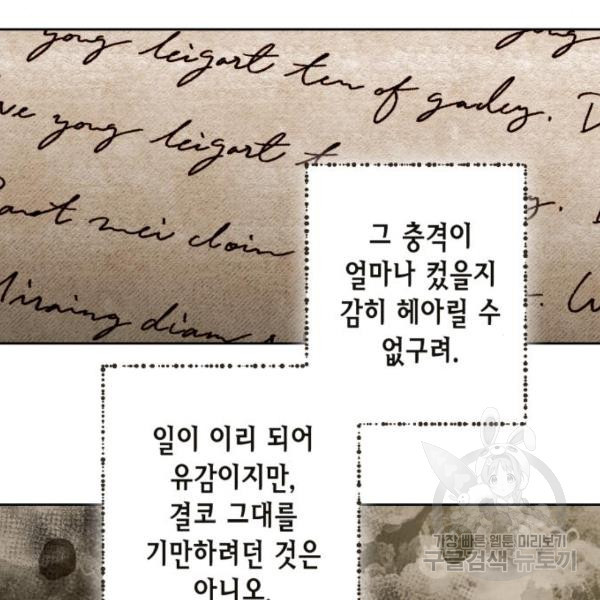 yong leigart ten of gadey. D
ve yong leigart t
mei cloin
diam
그 충격이
얼마나 컸을지
감히 헤아릴 수
없구려.
일이 이리 되어
유감이지만,
결코 그대를
기만하려던 것은
아니오.
가장 빠른 웹툰 미리보기
구글검색 뉴토끼